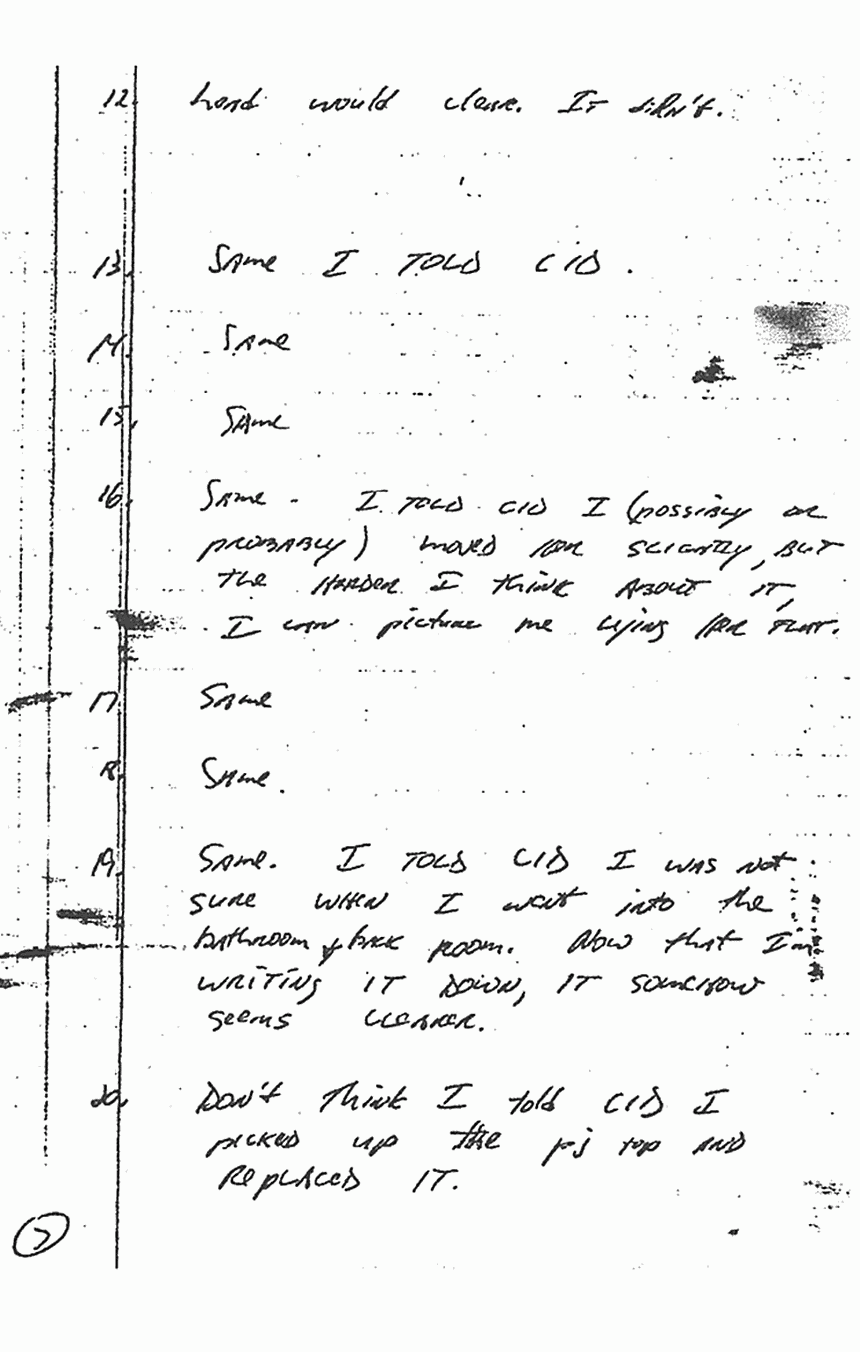 12. head would clear. IT didn't.
13. SAme I TOLD CID.
14. SAme
15. SAme
16. SAme - I TOLD CID I (possibly or
probably) moved her slightly, but
the HARDER I think About IT,
I can picture me lying her flat.
17. SAme
18. SAme.
19. SAme. I TOLD CID I was not
sure WHEN I went into the
bathroom & back room. Now that I'm
writing IT DOWN, IT somehow
seems clearer.
20. Don't think I told CID I
picked up the pj top AND
REplACED IT.
5